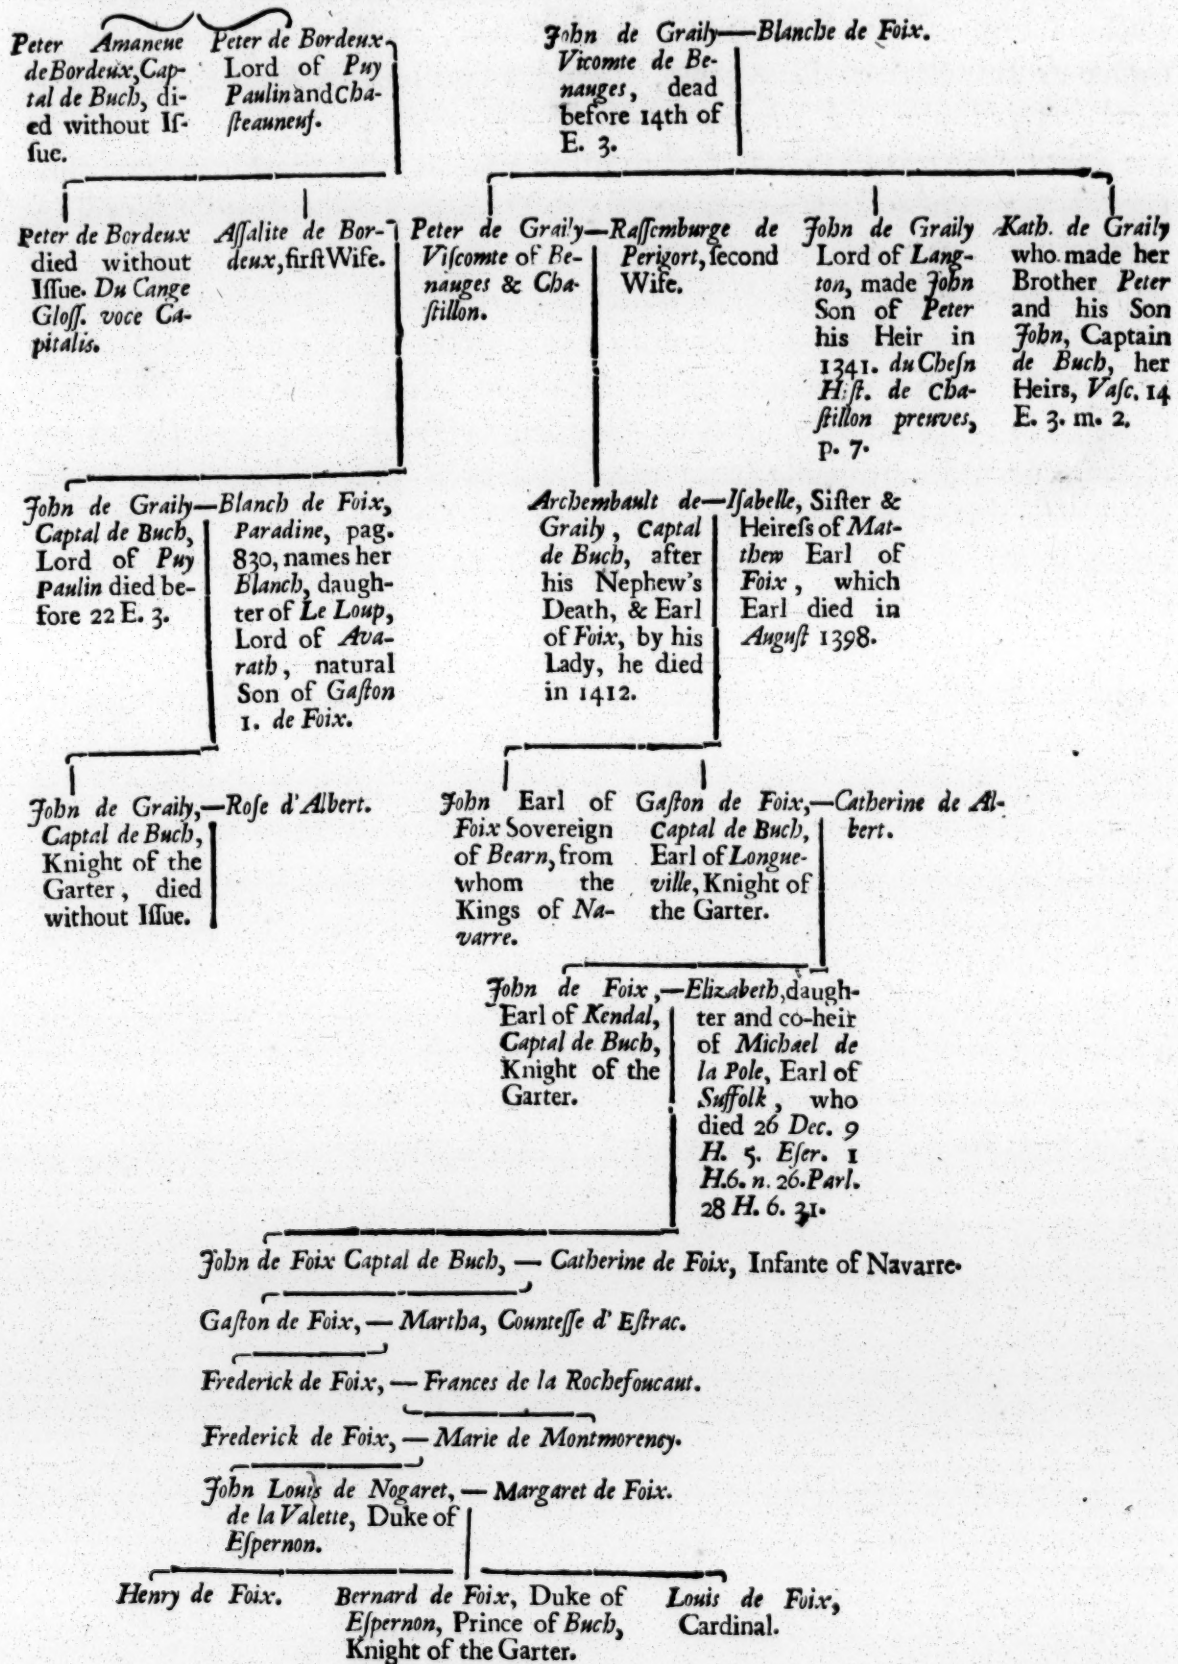 Peter Amaneue
de Bordeux, Cap-
tal de Buch, di-
ed without Iſ-
ſue.
Peter de Bordeux
Lord of Puy
Paulin and Cha-
ſteauneuf.
John de Graily—Blanche de Foix.
Vicomte de Be-
nauges, dead
before 14th of
E. 3.
Peter de Bordeux
died without
Iſſue. Du Cange
Gloſſ. voce Ca-
pitalis.
Aſſalite de Bor-
deux, firſt Wife.
Peter de Graily—Raſſemburge de
Viſcomte of Be-
nauges & Cha-
ſtillon.
Perigort, ſecond
Wife.
John de Graily
Lord of Lang-
ton, made John
Son of Peter
his Heir in
1341. du Cheſn
Hiſt. de Cha-
ſtillon preuves,
p. 7.
Kath. de Graily
who made her
Brother Peter
and his Son
John, Captain
de Buch, her
Heirs, Vaſc. 14
E. 3. m. 2.
John de Graily—Blanch de Foix,
Captal de Buch,
Lord of Puy
Paulin died be-
fore 22 E. 3.
Paradine, pag.
830, names her
Blanch, daugh-
ter of Le Loup,
Lord of Ava-
rath, natural
Son of Gaſton
1. de Foix.
Archembault de—Iſabelle, Siſter &
Graily, Captal
de Buch, after
his Nephew's
Death, & Earl
of Foix, by his
Lady, he died
in 1412.
Heireſs of Mat-
thew Earl of
Foix, which
Earl died in
Auguſt 1398.
John de Graily,—Roſe d'Albert.
Captal de Buch,
Knight of the
Garter, died
without Iſſue.
John Earl of
Foix Sovereign
of Bearn, from
whom the
Kings of Na-
varre.
Gaſton de Foix,—Catherine de Al-
Captal de Buch,
Earl of Longue-
ville, Knight of
the Garter.
bert.
John de Foix,—Elizabeth, daugh-
Earl of Kendal,
Captal de Buch,
Knight of the
Garter.
ter and co-heir
of Michael de
la Pole, Earl of
Suffolk, who
died 26 Dec. 9
H. 5. Eſer. 1
H. 6. n. 26. Parl.
28 H. 6. 31.
John de Foix Captal de Buch, — Catherine de Foix, Infante of Navarre.
Gaſton de Foix, — Martha, Counteſſe d' Eſtrac.
Frederick de Foix, — Frances de la Rochefoucaut.
Frederick de Foix, — Marie de Montmorency.
John Louis de Nogaret, — Margaret de Foix.
de la Valette, Duke of
Eſpernon.
Henry de Foix.
Bernard de Foix, Duke of
Eſpernon, Prince of Buch,
Knight of the Garter.
Louis de Foix,
Cardinal.